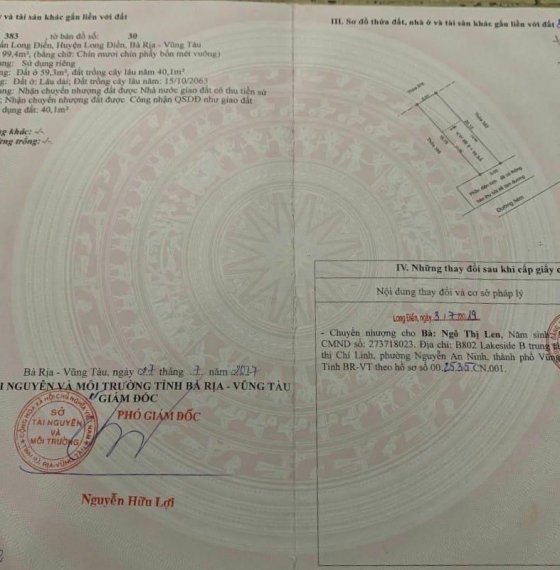 và tài sản khác gắn liền với đất
383 , tờ bản đồ số: 30
ấn Long Điền, Huyện Long Điền, Bà Rịa - Vũng Tàu
99,4m², (bằng chữ: Chín mươi chín phẩy bốn mét vuông)
ng: Sử dụng riêng
ng: Đất ở 59,3m², đất trồng cây lâu năm 40,1m²
ng: Đất ở: Lâu dài; Đất trồng cây lâu năm: 15/10/2063
ung: Nhận chuyển nhượng đất được Nhà nước giao đất có thu tiền sử
; Nhận chuyển nhượng đất được Công nhận QSDĐ như giao đất
dụng đất: 40,1m²
ng khác: -/-
ừng trồng: -/-
Bà Rịa - Vũng Tàu, ngày 07 tháng 7 năm 2017
I NGUYÊN VÀ MÔI TRƯỜNG TỈNH BÀ RỊA - VŨNG TÀU
GIÁM ĐỐC
PHÓ GIÁM ĐỐC
SỞ
TÀI NGUYÊN
VÀ
MÔI TRƯỜNG
Nguyễn Hữu Lợi
III. Sơ đồ thửa đất, nhà ở và tài sản khác gắn liền với đất
Đường hẻm
IV. Những thay đổi sau khi cấp giấy c
Nội dung thay đổi và cơ sở pháp lý
Long Điền, ngày 3/7/2019
- Chuyển nhượng cho Bà: Ngô Thị Len, Năm sinh
CMND số: 273718023. Địa chỉ: B802 Lakeside B trung tâ
thị Chí Linh, phường Nguyễn An Ninh, thành phố Vũng
Tỉnh BR-VT theo hồ sơ số 00.2535.CN.001.